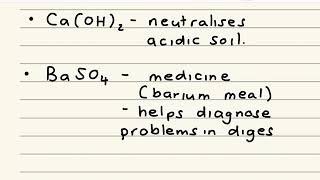 • Ca(OH)₂ - neutralises
acidic soil.
• BaSO₄ - medicine
(barium meal)
- helps diagnose
problems in diges